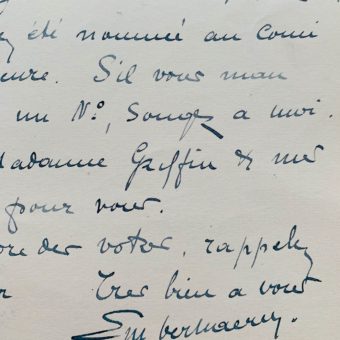 été nommé au Comi
eure. S'il vous man
un No, Songez a moi.
adame Griffin & mes
pour vous.
ore des votres, rappelez
Tres bien a vous
Em Verhaeren.